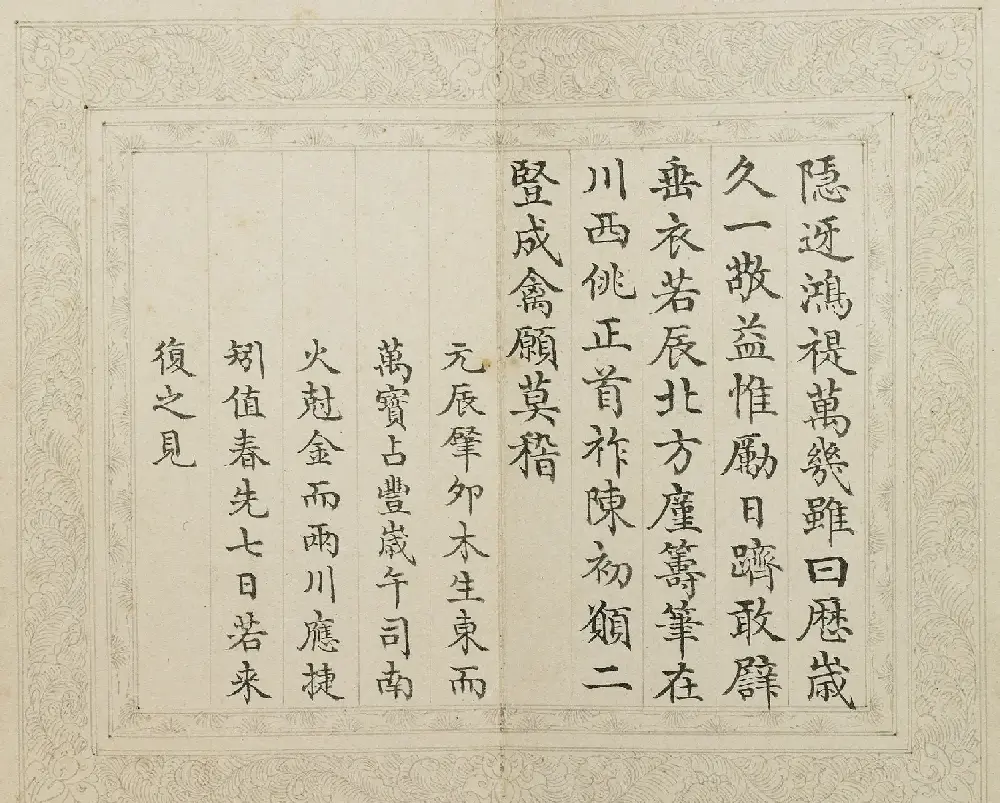 隱迓鴻禔萬幾雖曰歷歲
久一敬益惟勵日躋敢辟
垂衣若辰北方廑籌筆在
川西佻正首祚陳初願二
豎成禽願莫稽
元辰肇卯木生東而
萬寶占豐歲午司南
火尅金而兩川應捷
矧值春先七日若来
復之見